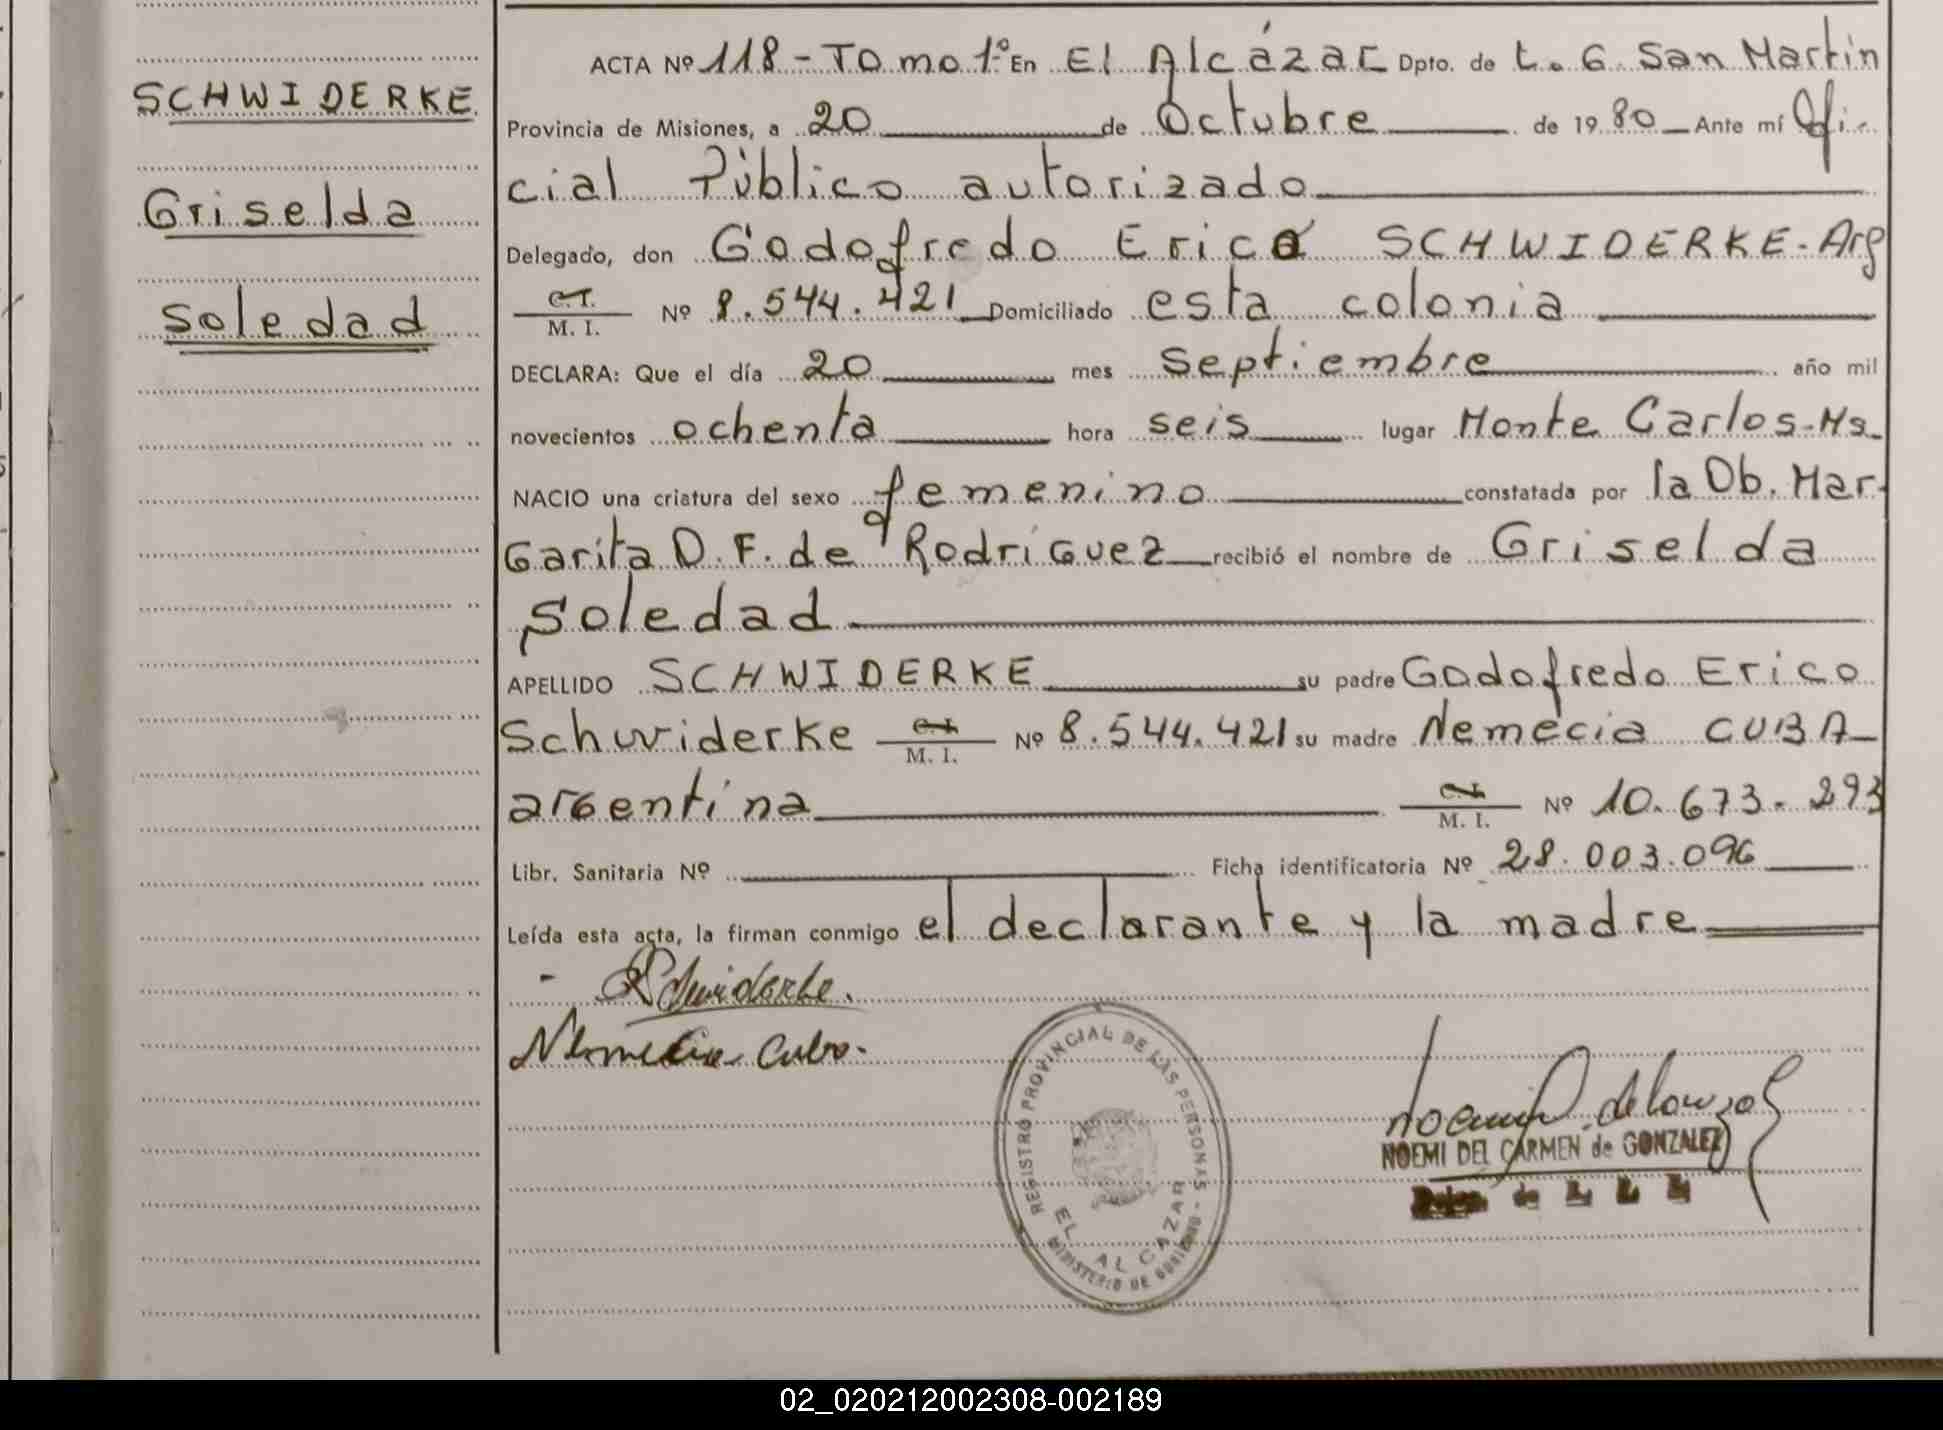 SCHWIDERKE
Griselda
Soledad
ACTA Nº 118 - Tomo 1º En El Alcázar Dpto. de L. G. San Martín
Provincia de Misiones, a 20 de Octubre de 1980 Ante mí Ofi-
cial Público autorizado
Delegado, don Godofredo Erico SCHWIDERKE - Arg
C.I.
M. I. Nº 8.544.421 Domiciliado esta colonia
DECLARA: Que el día 20 mes Septiembre año mil
novecientos ochenta hora seis lugar Monte Carlos - Ms.
NACIO una criatura del sexo femenino constatada por la Ob. Mar-
garita D. F. de Rodríguez recibió el nombre de Griselda
Soledad
APELLIDO SCHWIDERKE su padre Godofredo Erico
Schwiderke C.I. M. I. Nº 8.544.421 su madre Nemecia CUBA
argentina C.I. M. I. Nº 10.673.293
Libr. Sanitaria Nº Ficha identificatoria Nº 28.003.096
Leída esta acta, la firman conmigo el declarante y la madre
Schwiderke.
Nemecia Cuba.
REGISTRO PROVINCIAL DE LAS PERSONAS - MINISTERIO DE GOBIERNO
EL ALCAZAR
NOEMI DEL CARMEN de GONZALEZ
02_020212002308-002189